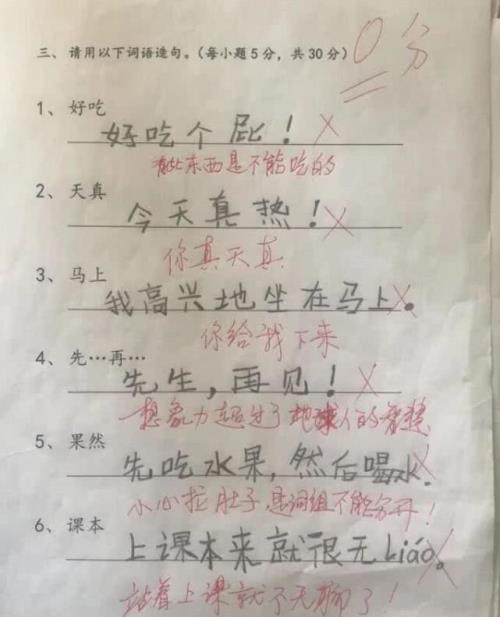 三、请用以下词语造句。（每小题5分，共30分） 0分
1、好吃
好吃个屁！
有些东西是不能吃的
2、天真
今天真热！
你真天真
3、马上
我高兴地坐在马上。
你给我下来
4、先…再…
先生，再见！
想象力超过了地球人的智慧
5、果然
先吃水果，然后喝水.
小心拉肚子，是词组不能分开！
6、课本
上课本来就很无liáo。
站着上课就不无聊了！